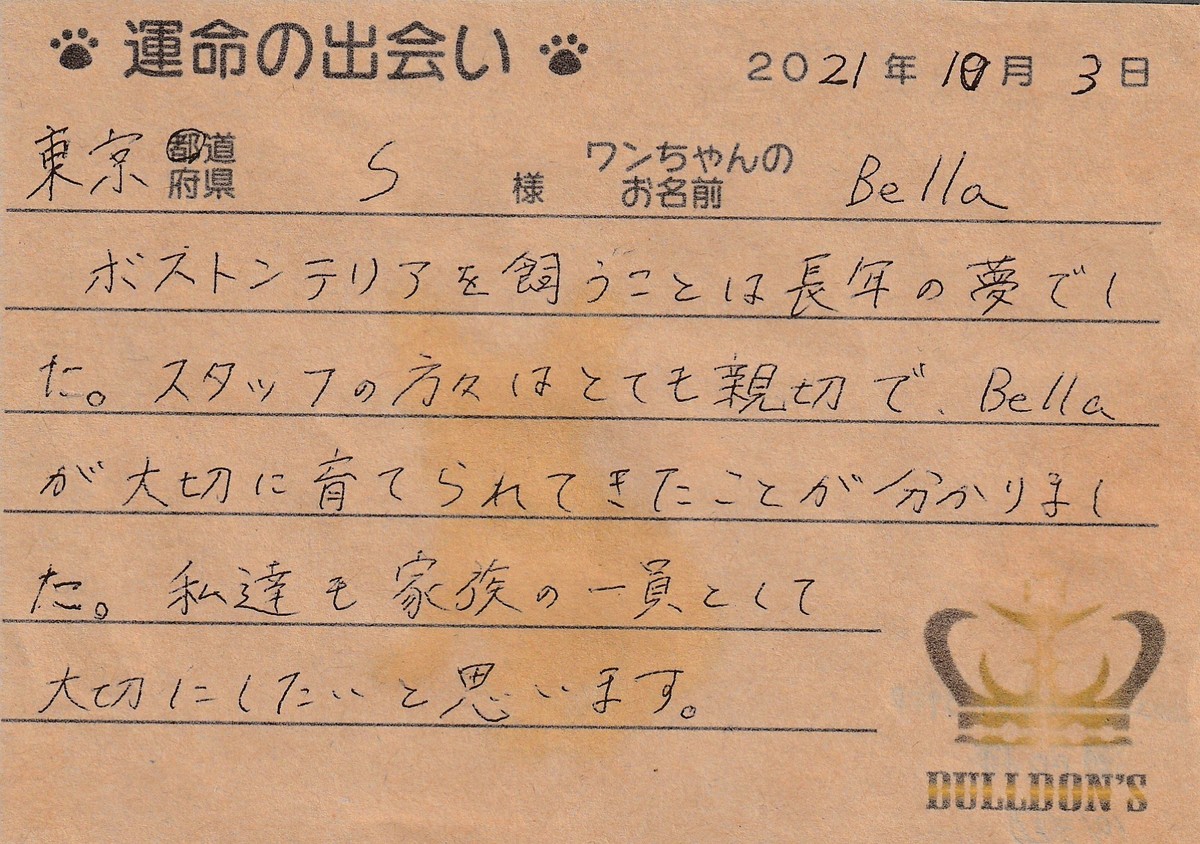 運命の出会い
2021年 10月 3日
東京 都道府県 S 様 ワンちゃんのお名前 Bella
ボストンテリアを飼うことは長年の夢でし
た。スタッフの方々はとても親切で、Bella
が大切に育てられてきたことが分かりまし
た。私達も家族の一員として
大切にしたいと思います。
DULLDON'S